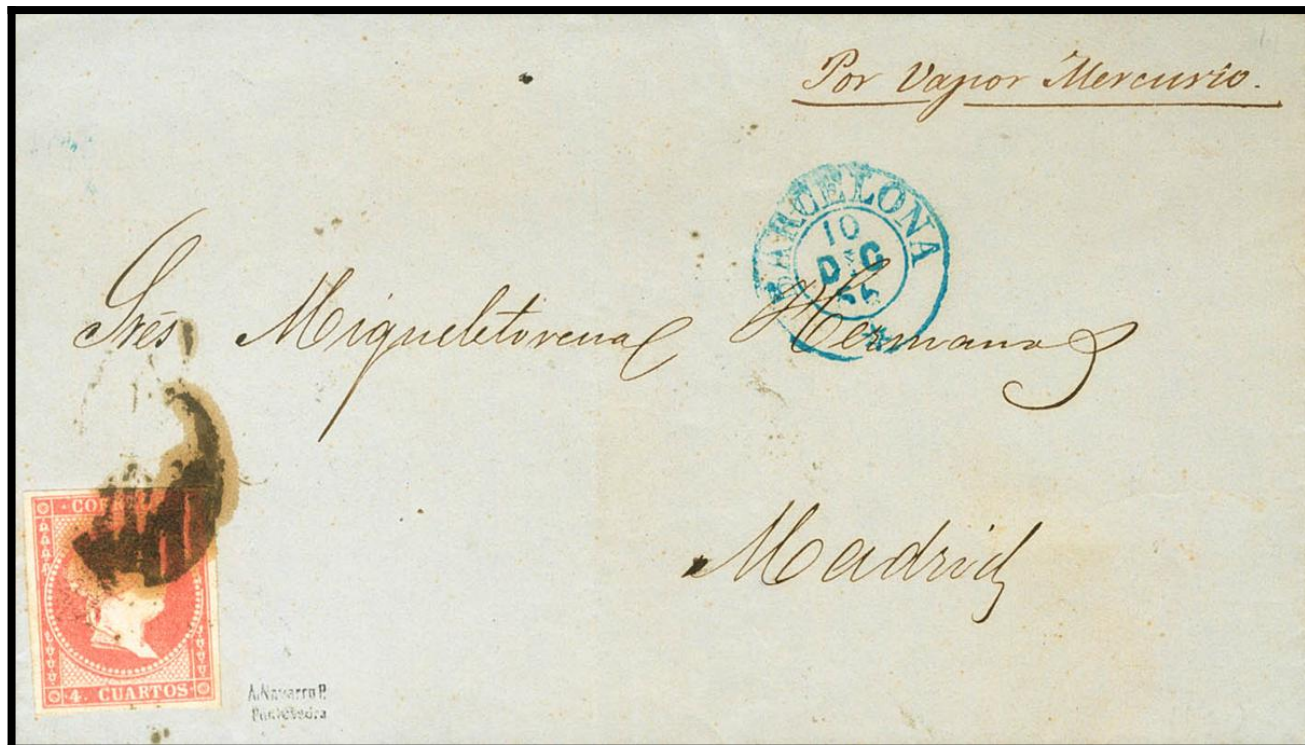 Por Vapor Mercurio.
BARCELONA
10
DIC
Srés Migueletorena Hermanos
Madrid
4. CUARTOS
A. Navarro P.
Pontevedra